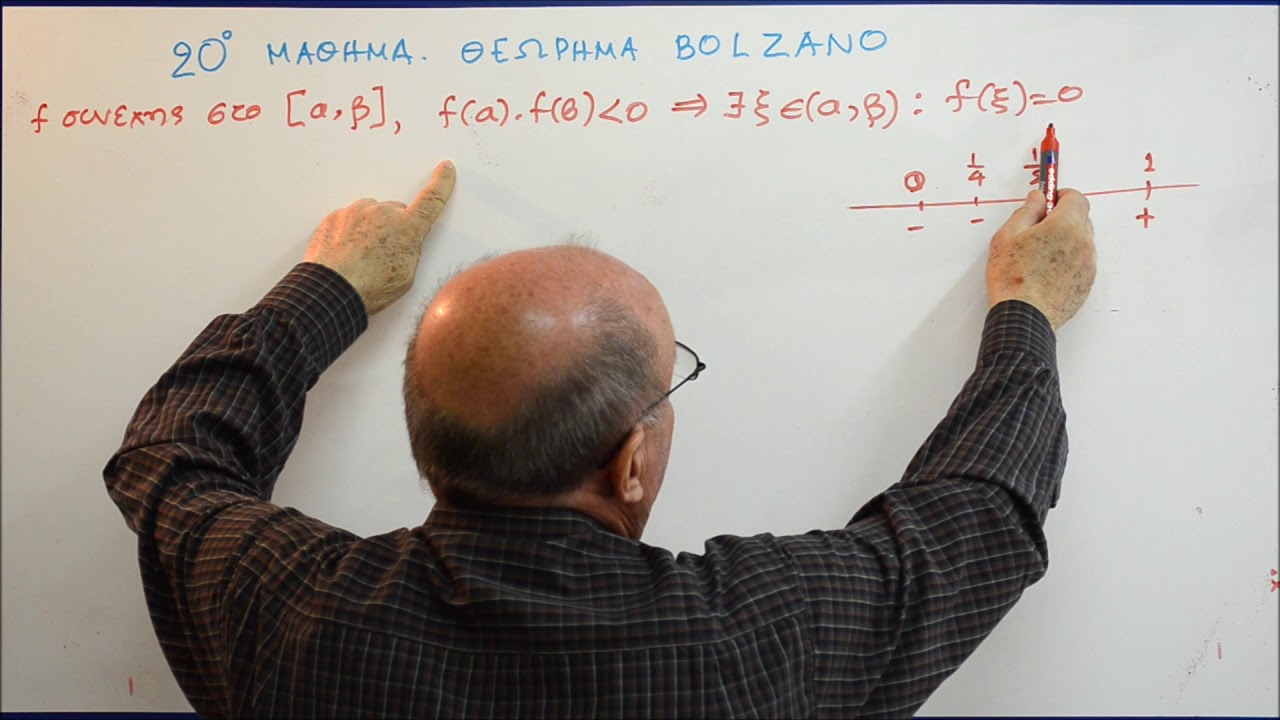 20° ΜΑΘΗΜΑ. ΘΕΩΡΗΜΑ BOLZANO
f συνεχης στο [α,β], f(α).f(β)<0 ⇒ ∃ ξ ∈(α,β): f(ξ)=0
0 1/4 1
- - +